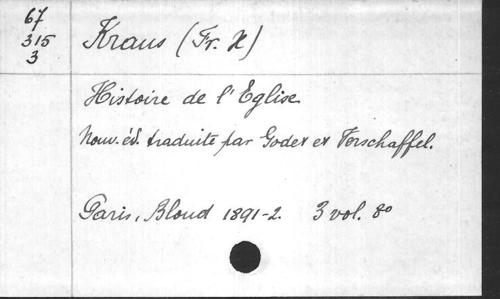 67
315
3
Kraus (Fr. X)
Histoire de l'Eglise
Nouv. éd. traduite par Godet et Verschaffel.
Paris, Bloud 1891-2. 3 vol. 8º